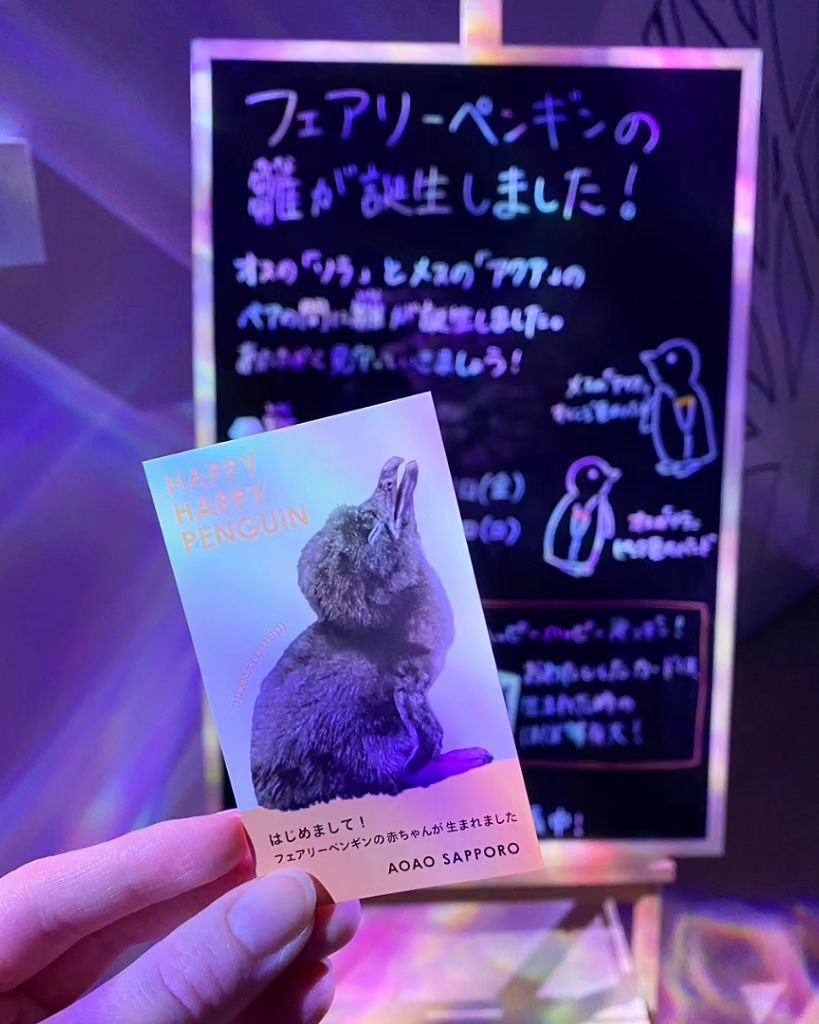 フェアリーペンギンの
雛が誕生しました!
オスの「ソラ」とメスの「アクア」の
ペアの間に雛が誕生しました。
あたたかく見守っていきましょう!
(金)
(日)
メスの「アクア」
オスの「ソラ」
ハッピーハッピーペンギン!
おわたししたカードは
生まれた時の
ほぼ等身大!
中!
HAPPY
HAPPY
PENGUIN
はじめまして!
フェアリーペンギンの赤ちゃんが生まれました
AOAO SAPPORO